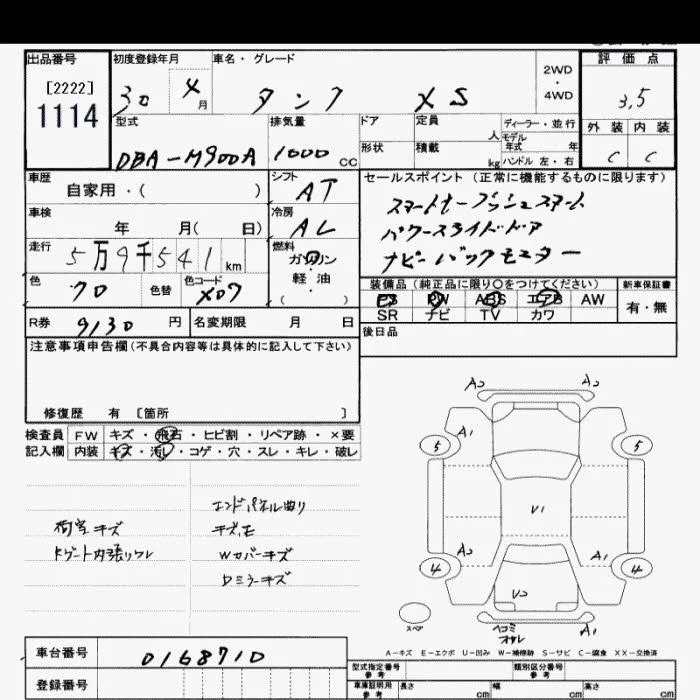 出品番号 初度登録年月 車名・グレード 評価点
[2222]
1114
30 4月 タンク XS 2WD・4WD 3.5
型式 排気量 ドア 定員 人 ディーラー・並行 外装 内装
モデル年式 年
DBA-M900A 1000 CC 形状 積載 kg ハンドル 左・右 C C
車歴 シフト セールスポイント (正常に機能するものに限ります)
自家用・( ) AT
スマートキープッシュスタート
車検 冷房
年 月( 日) AL
パワースライドドア
走行 燃料
5万9千541km ガソリン
ナビーバックモニター
軽油
・( )
色 色替 色コード
70 X07
装備品 (純正品に限り○をつけてください) 新車保証書
PS PW ABS エアB AW 有・無
SR ナビ TV カワ
R券 9130円 名変期限 月 日
後日品
注意事項申告欄(不具合内容等は具体的に記入して下さい)
修復歴 有 [箇所 ]
検査員 FW キズ・飛石・ヒビ割・リペア跡・×要
記入欄 内装 キズ・汚れ・コゲ・穴・スレ・キレ・破レ
エンドパネル曲り
荷室キズ
Rゲート内張りワレ Wカバーキズ
Dミラーキズ
A2 A2
A1
5 5
V1
A2 A1
4 4
V2
スペア ヘコミ A1
A-キズ E-エクボ U-凹み W-補修跡 S-サビ C-腐食 XX-交換済
車台番号 0168710
登録番号
型式指定番号 参考 類別区分番号 参考
車庫証明用 参考 長さ cm 幅 cm 高さ cm